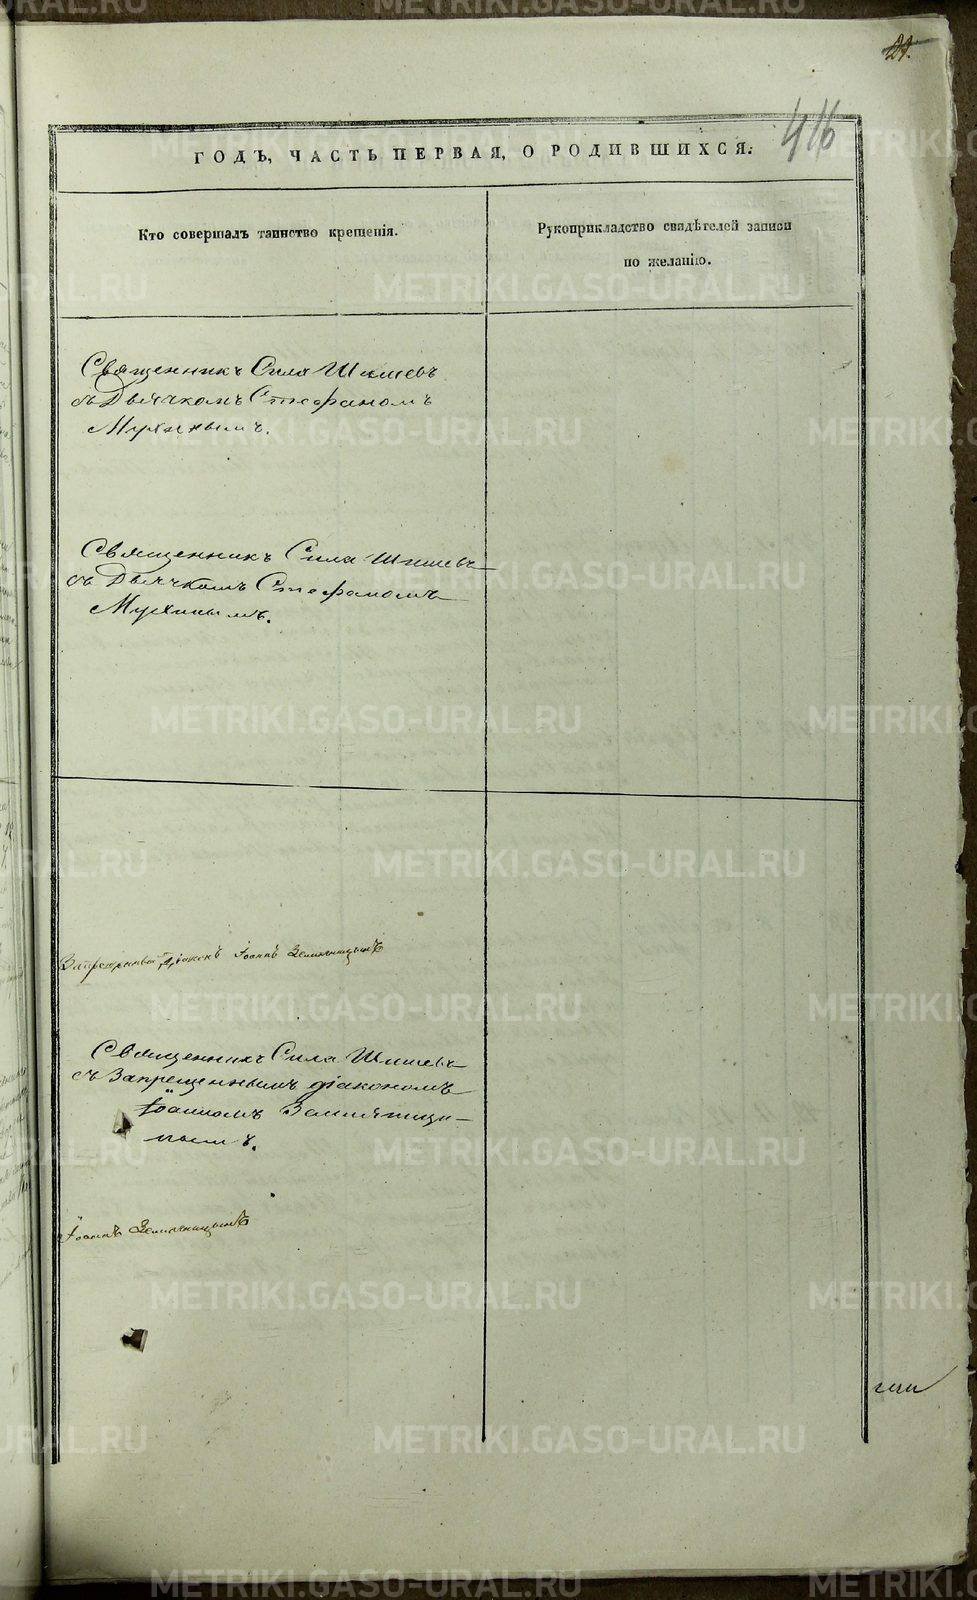 21.
416
ГОДЪ, ЧАСТЬ ПЕРВАЯ, О РОДИВШИХСЯ.
Кто совершалъ таинство крещенія.
Рукоприкладство свидѣтелей записи
по желанію.
Священникъ Сила Шишевъ
съ Дьячкомъ Стефаномъ
Мухинымъ.
Священникъ Сила Шишевъ
съ Дьячкомъ Стефаномъ
Мухинымъ.
Запрещенный Діаконъ Іоаннъ
Священникъ Сила Шишевъ
съ Запрещеннымъ діакономъ
Іоанномъ
нымъ.
Іоаннъ
METRIKI.GASO-URAL.RU